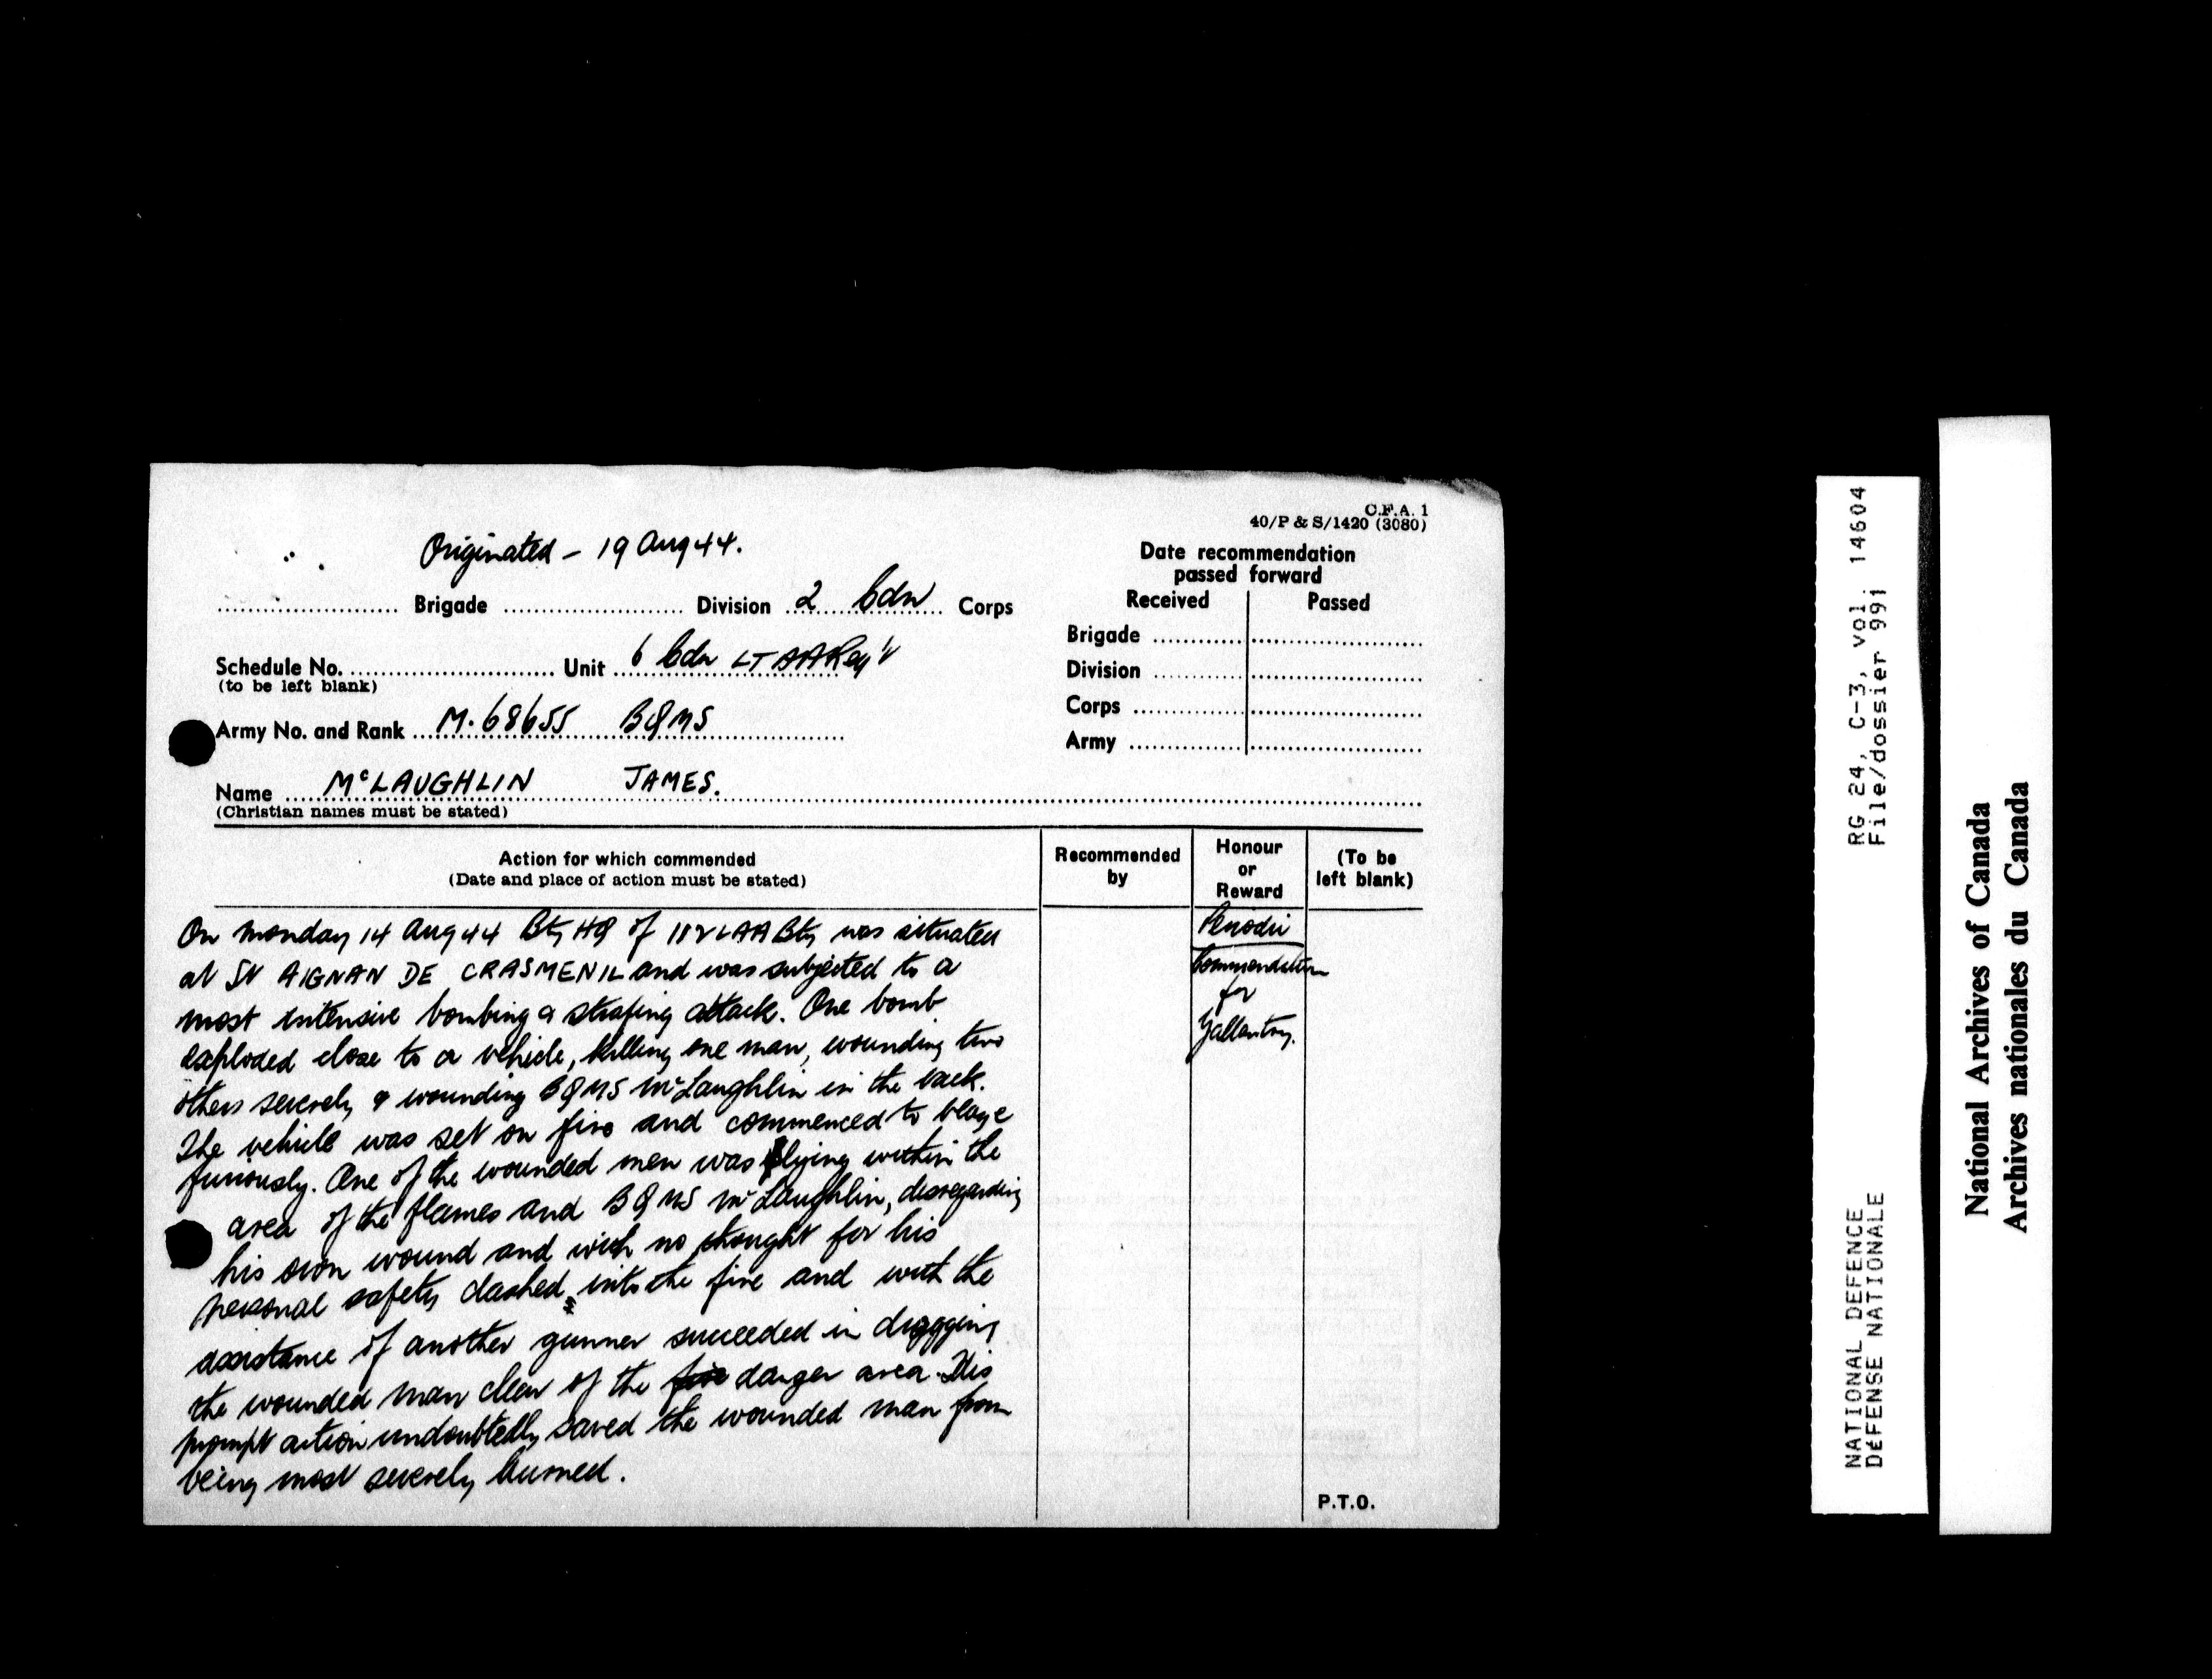 C.F.A. 1
40/P & S/1420 (3080)
Originated - 19 Aug 44.
Date recommendation
passed forward
Received Passed
Brigade Division 2 Cdn Corps
Brigade
Division
Corps
Army
Schedule No. Unit 6 Cdn LT AA Reg't
(to be left blank)
Army No. and Rank M. 68655 BQMS
Name McLAUGHLIN JAMES.
(Christian names must be stated)
Action for which commended
(Date and place of action must be stated)
Recommended
by
Honour
or
Reward
(To be
left blank)
On Monday 14 Aug 44 Bty HQ of 112 LAA Bty was situated
at St AIGNAN DE CRASMENIL and was subjected to a
most intensive bombing & strafing attack. One bomb
exploded close to a vehicle, killing one man, wounding two
others severely & wounding BQMS McLaughlin in the back.
The vehicle was set on fire and commenced to blaze
furiously. One of the wounded men was lying within the
area of the flames and BQMS McLaughlin, disregarding
his own wound and with no thought for his
personal safety dashed into the fire and with the
assistance of another gunner succeeded in dragging
the wounded man clear of the fire danger area. This
prompt action undoubtedly saved the wounded man from
being most severely burned.
Periodic
Commendation
for
Gallantry.
P.T.O.
RG 24, C-3, vol. 14604
File/dossier 991
NATIONAL DEFENCE
DÉFENSE NATIONALE
National Archives of Canada
Archives nationales du Canada